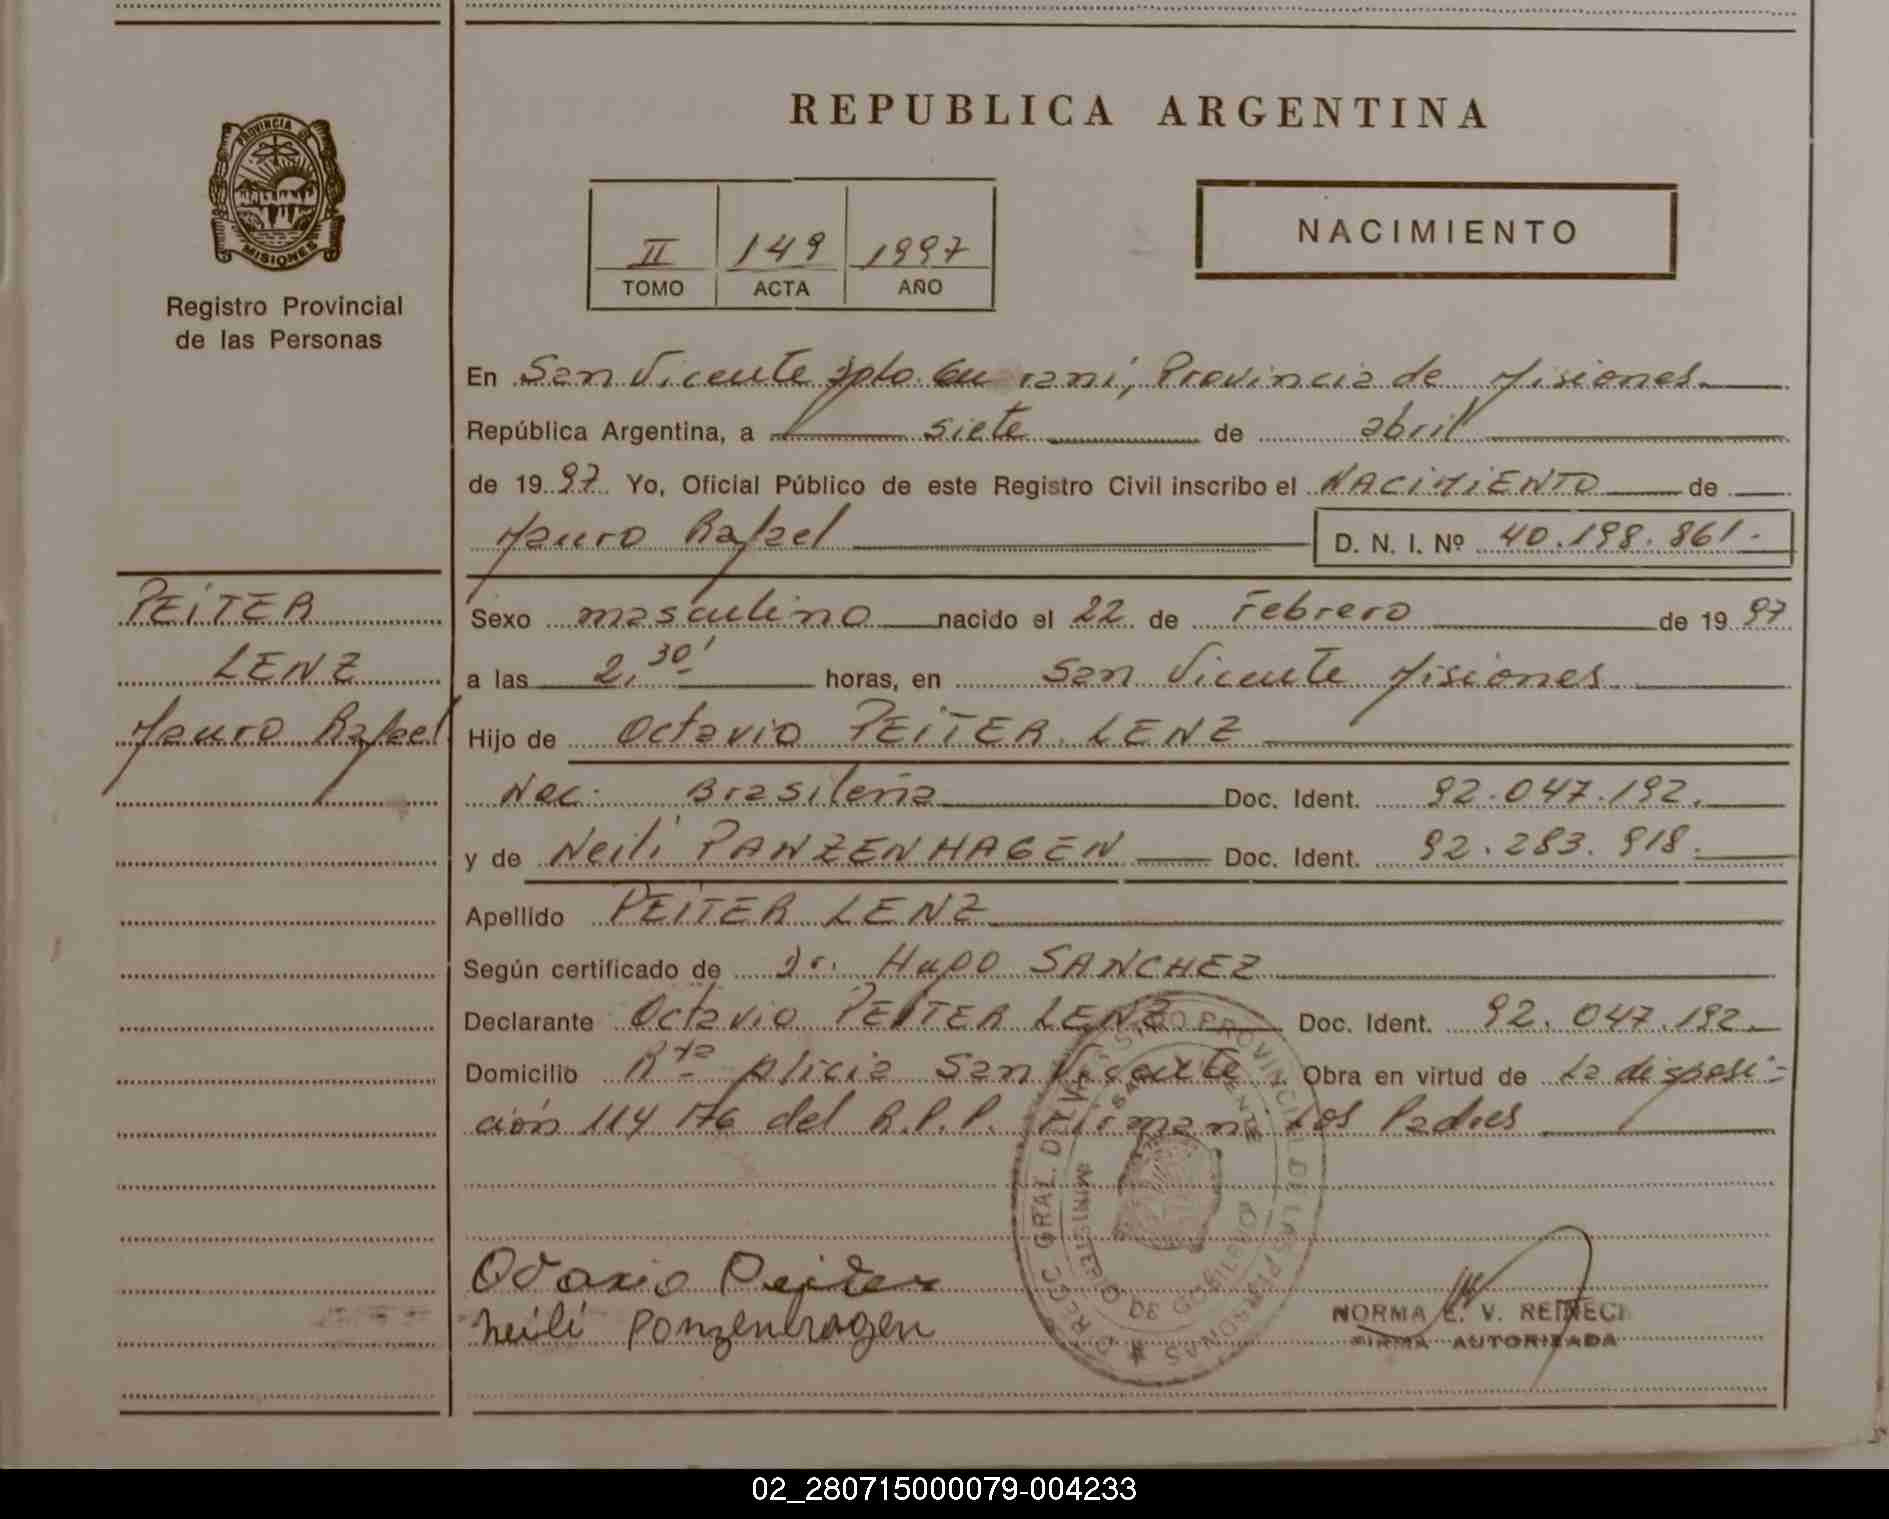 REPUBLICA ARGENTINA
PROVINCIA DE
MISIONES
Registro Provincial
de las Personas
II 149 1997
TOMO ACTA AÑO
NACIMIENTO
En San Vicente Dpto. Guaraní, Provincia de Misiones
República Argentina, a siete de abril
de 1997 Yo, Oficial Público de este Registro Civil inscribo el NACIMIENTO de
Mauro Rafael D. N. I. Nº 40.198.861.-
PEITER
LENZ
Mauro Rafael
Sexo masculino nacido el 22 de Febrero de 1997
a las 2,30' horas, en San Vicente Misiones
Hijo de Octavio PEITER LENZ
Nac. Brasileña Doc. Ident. 92.047.192.
y de Neili PANZENHAGEN Doc. Ident. 92.283.918.
Apellido PEITER LENZ
Según certificado de Dr. Hugo SANCHEZ
Declarante Octavio PEITER LENZ Doc. Ident. 92.047.192.
Domicilio Rta plicia San Vicente Obra en virtud de La disposi-
ción 114/76 del R.P.P. Firman Los Padres
Octavio Peiter
Neili Ponzenhagen
MINISTERIO DE GOBIERNO
NORMA E. V. REINECK
FIRMA AUTORIZADA
02_280715000079-004233